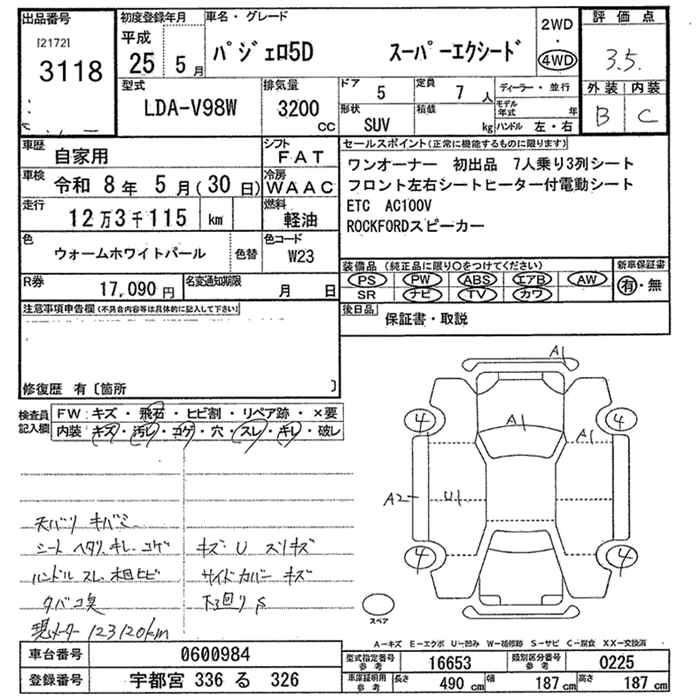 出品番号
[21721]
3118
初度登録年月
平成
25 5 月
車名・グレード
パジェロ5D スーパーエクシード
2WD
・
4WD
評価点
3.5
外装 内装
B C
型式
LDA-V98W
排気量
3200
CC
ドア 5
定員 7 人
形状
SUV
積載
kg
ディーラー・並行
モデル年式 年
ハンドル 左・右
車歴
自家用
シフト
FAT
車検
令和 8年 5月(30日)
冷房
WAAC
走行
12万3千115 km
燃料
軽油
色
ウォームホワイトパール
色替
色コード
W23
R券
17,090 円
名変通知期限
月 日
セールスポイント(正常に機能するものに限ります)
ワンオーナー 初出品 7人乗り3列シート
フロント左右シートヒーター付電動シート
ETC AC100V
ROCKFORDスピーカー
装備品(純正品に限り○をつけてください)
PS PW ABS エアB AW
SR ナビ TV カワ
新車保証書
有・無
後日品
保証書・取説
注意事項申告欄(不具合内容等は具体的に記入して下さい)
修復歴 有〔箇所 〕
検査員記入欄
FW:キズ・飛石・ヒビ割・リペア跡・×要
内装:キズ・汚レ・コゲ・穴・スレ・キレ・破レ
天バリ キバミ
シート ヘタリ. キレ. コゲ
ハンドル スレ. 木目ヒビ
タバコ臭
現メーター 123120km
キズ・U スリキズ
サイドカバー キズ
下回り S
A1
4 4
A1 A1
A2 U1
4 4
スペア
A-キズ E-エクボ U-凹み W-補修跡 S-サビ C-腐食 XX-交換済
車台番号 0600984
登録番号 宇都宮 336 る 326
型式指定番号 参考 16653
類別区分番号 参考 0225
車庫証明用 参考 長さ 490 cm 幅 187 cm 高さ 187 cm